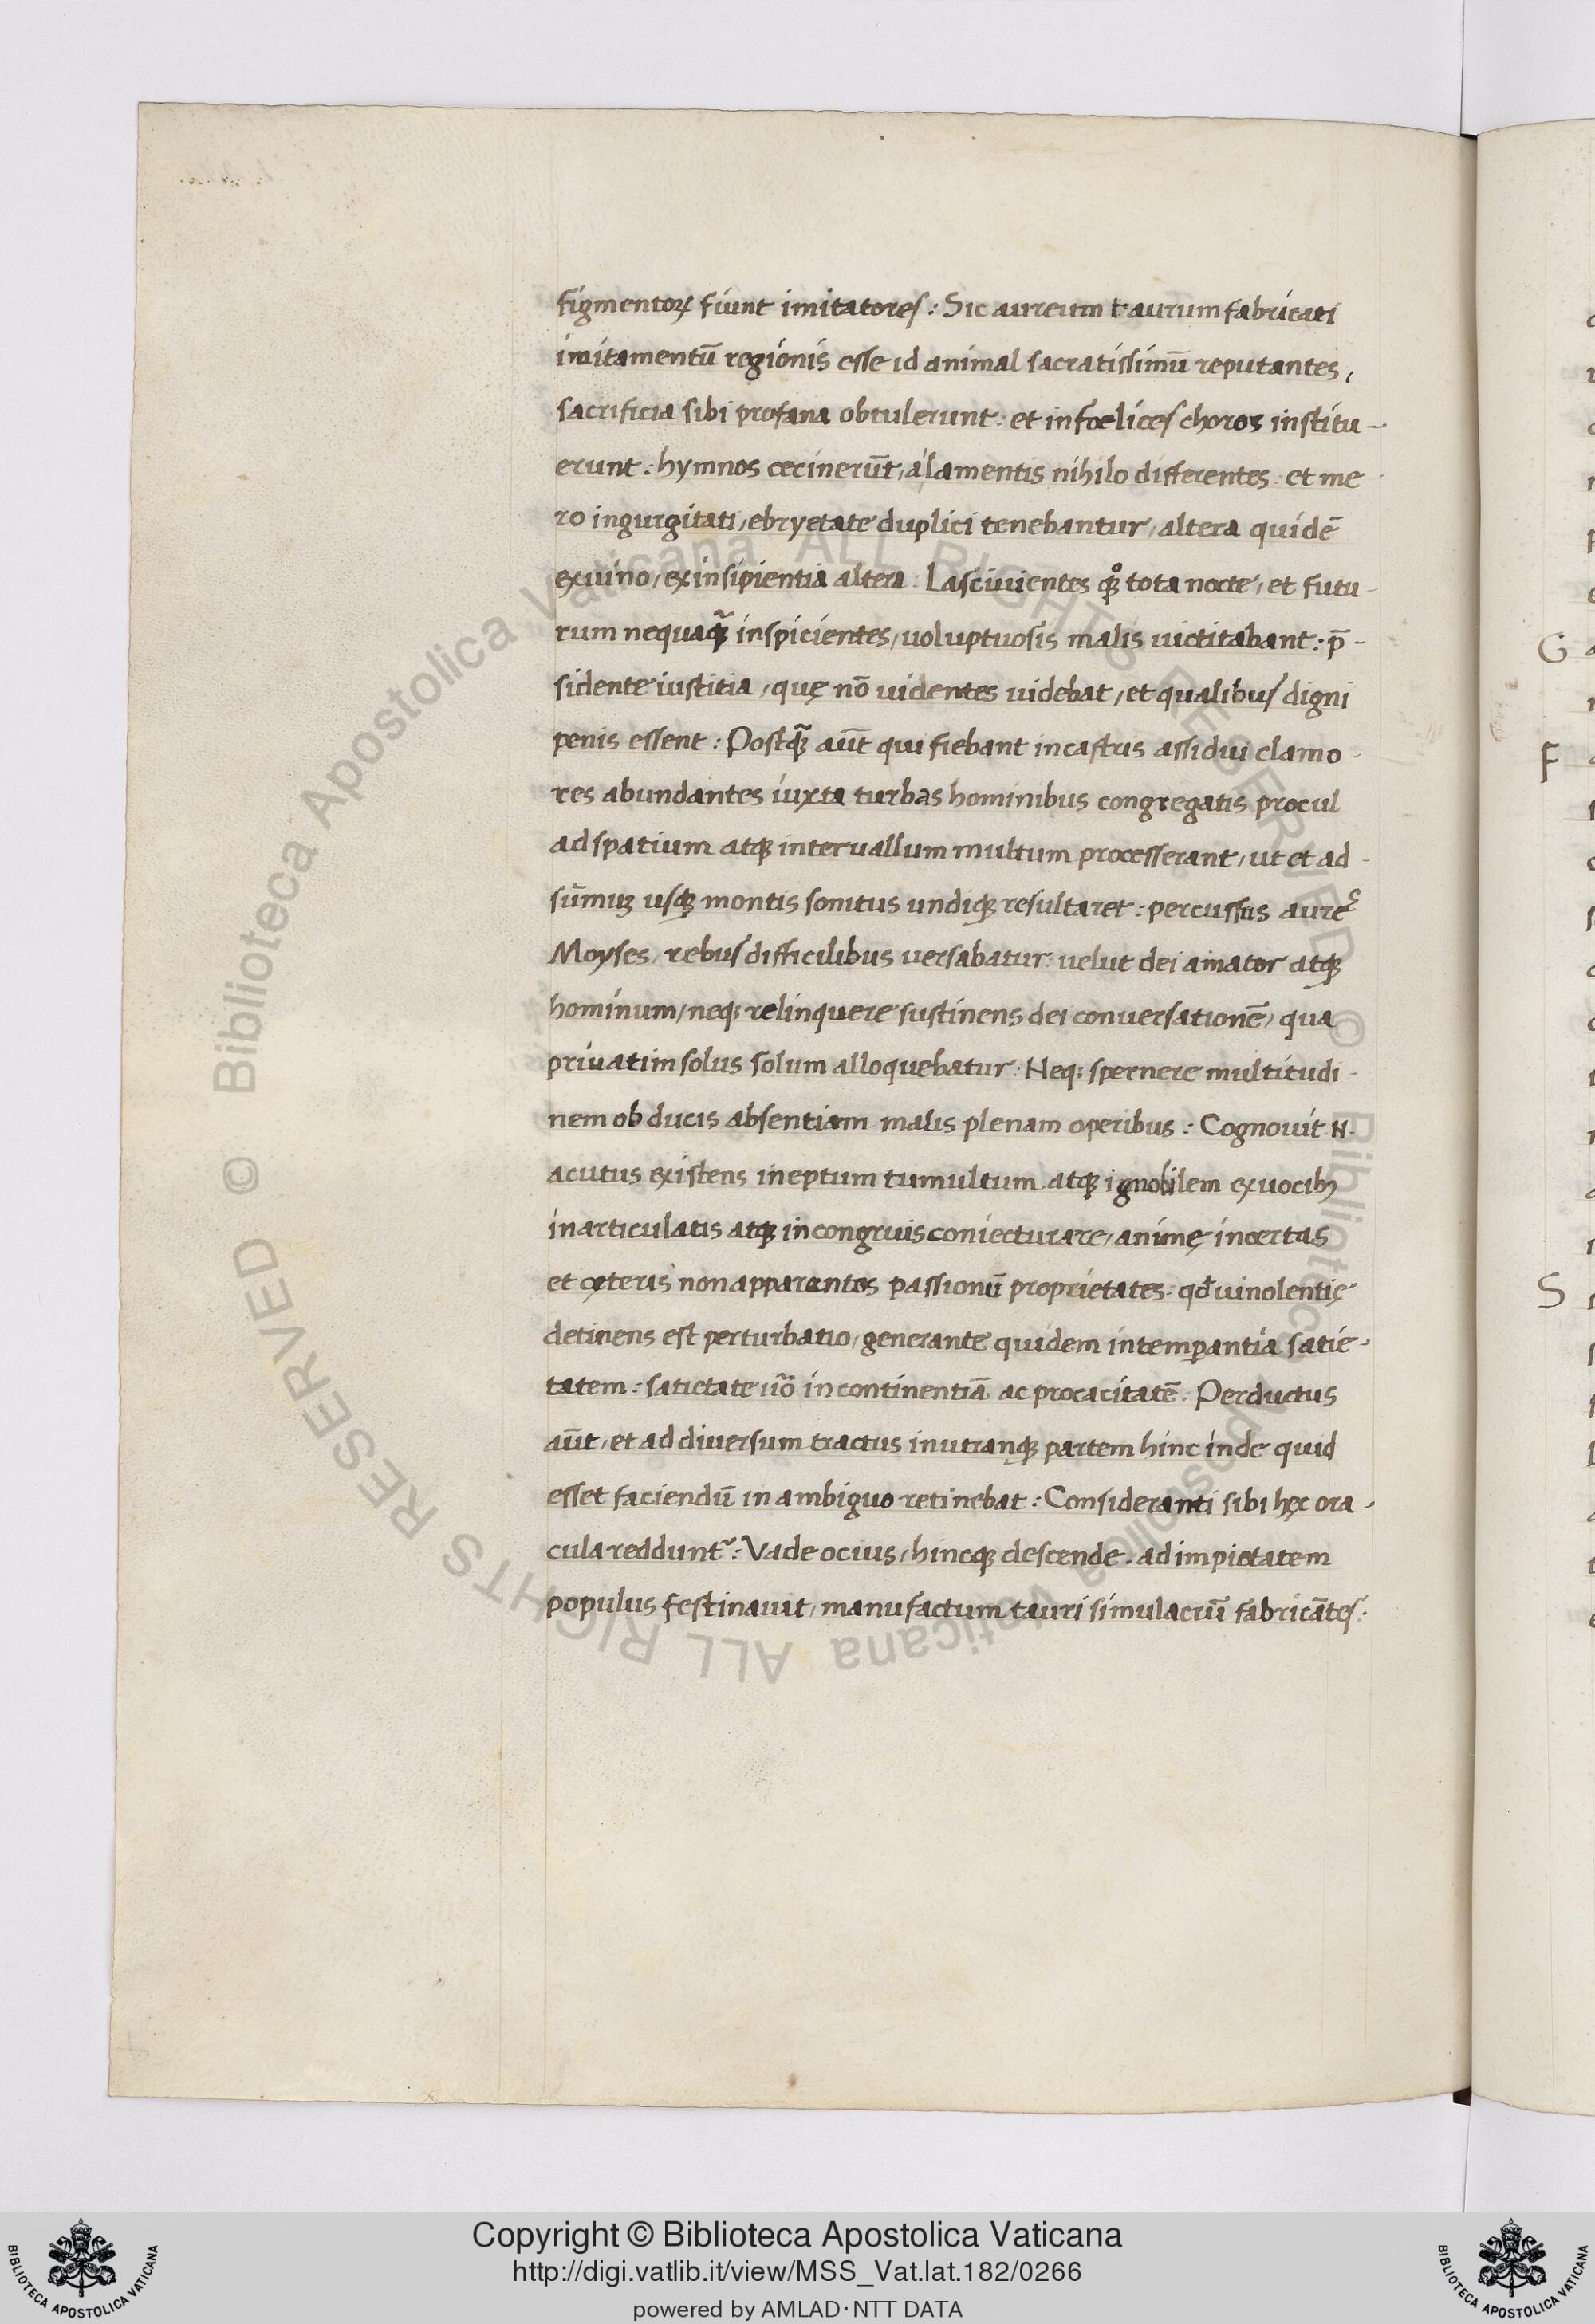 figmentoꝝ fiunt imitatores: Sic aureum taurum fabricati
imitamentū regionis esse id animal sacratissimū reputantes,
sacrificia sibi profana obtulerunt: et infœlices choros institu-
erunt: hymnos cecinerūt, a lamentis nihilo differentes. et me
ro ingurgitati, ebryetate duplici tenebantur, altera quidē
ex uino, ex insipientia altera. Lasciuientes qͦꝫ tota nocte, et futu-
rum nequaqꝫ̃ inspicientes, uoluptuosis malis uictitabant: p̄-
sidente iustitia, quę nō uidentes uidebat, et qualibus digni
penis essent: Postqꝫ̃ aūt qui fiebant in castris assidui clamo-
res abundantes iuxta turbas hominibus congregatis procul
ad spatium atqꝫ interuallum multum processerant, ut et ad-
sūmuꝫ usqꝫ montis sonitus undiqꝫ resultaret: percussus aure
Moyses, rebus difficilibus uersabatur: uelut dei amator atqꝫ
hominum, neqꝫ relinquere sustinens dei conuersationē, qua
priuatim solus solum alloquebatur: Neqꝫ spernere multitudi-
nem ob ducis absentiam malis plenam operibus: Cognouit N.
acutus existens ineptum tumultum atqꝫ ignobilem ex uocibꝫ
inarticulatis atqꝫ incongruis coniecturare, animę incertas
et cęteris non apparentes passionū proprietates. qđ uinolentię
detinens est perturbatio, generante quidem intemꝑantia satie-
tatem: satietate uō incontinentiā ac procacitatē. Perductus
aūt, et ad diuersum tractus in utranqꝫ partem hinc inde quid
esset faciendū in ambiguo retinebat: Consideranti sibi hęc ora-
cula reddunt᷑: Vade ocius, hincqꝫ descende. ad impietatem
populus festinauit, manufactum tauri simulacrū fabricātes:
G
F
S
© Biblioteca Apostolica Vaticana ALL RIGHTS RESERVED
© Biblioteca Apostolica Vaticana ALL RIGHTS RESERVED
BIBLIOTECA APOSTOLICA VATICANA
Copyright © Biblioteca Apostolica Vaticana
http://digi.vatlib.it/view/MSS_Vat.lat.182/0266
powered by AMLAD·NTT DATA
BIBLIOTECA APOSTOLICA VATICANA